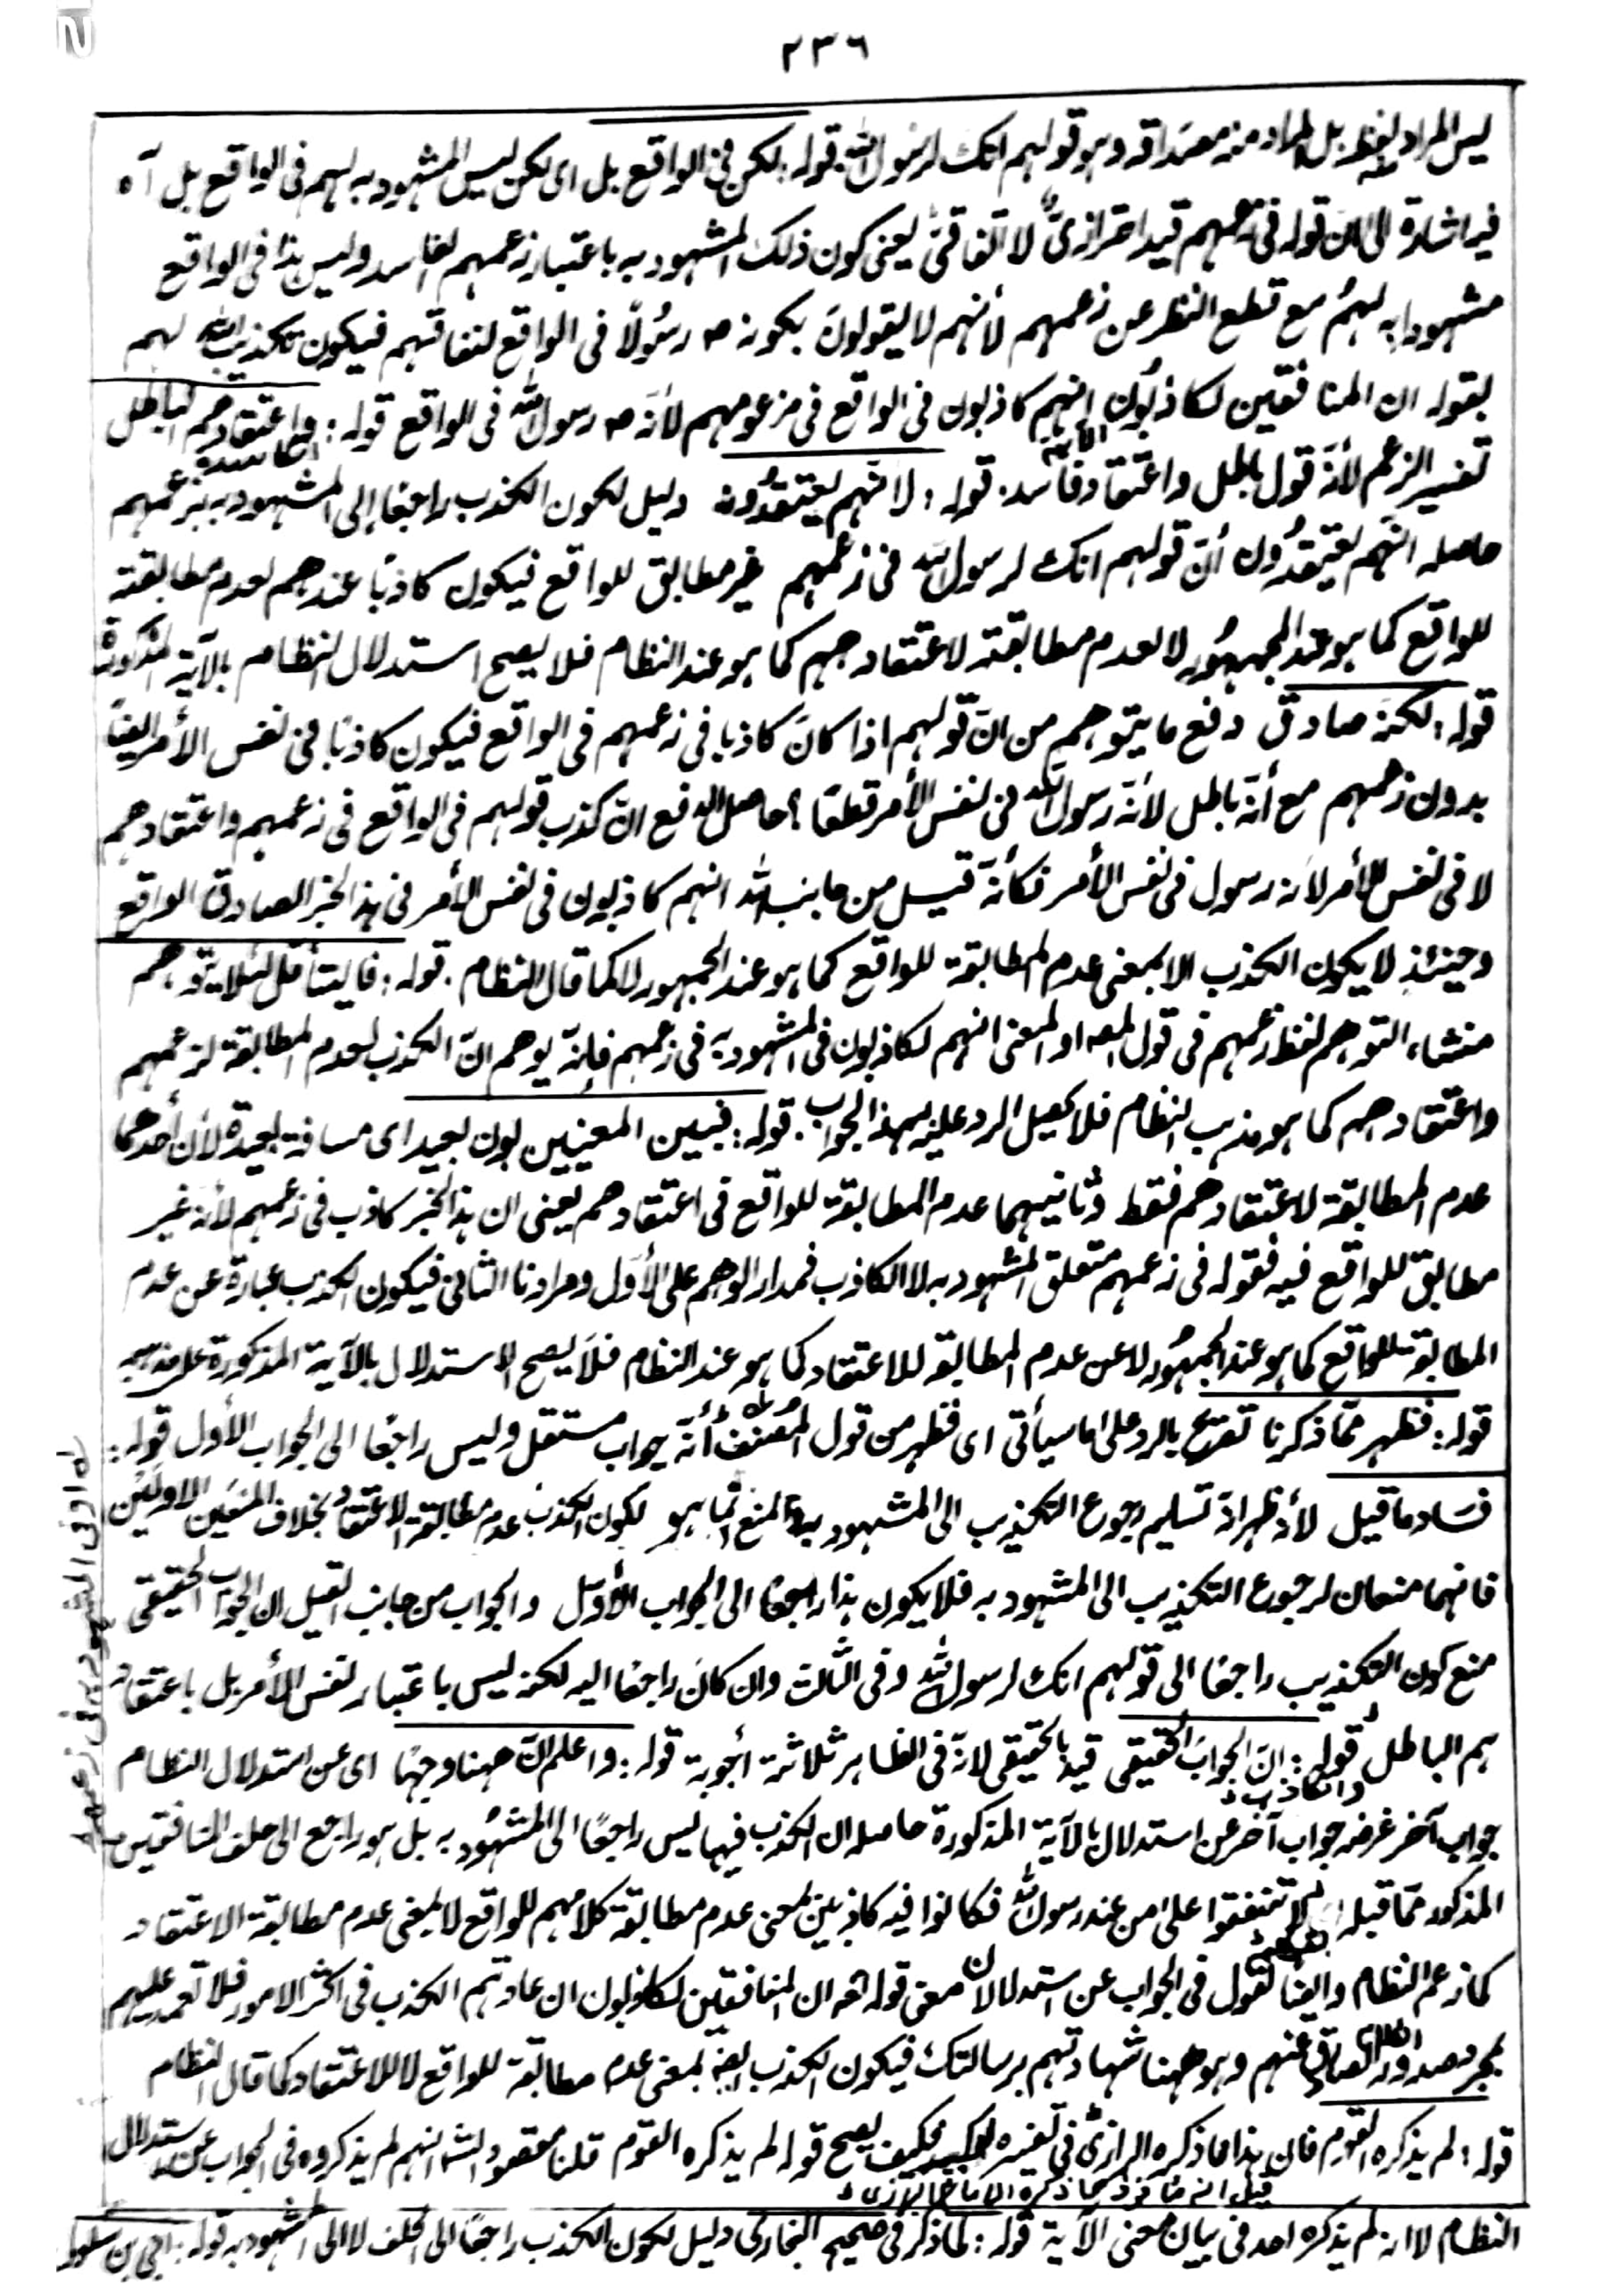 ٢٣٦
ليس المراد لفظه بل المراد منه مصداقه وهو قولهم انك لرسول الله قوله: لكن في الواقع بل اى لكن ليس المشهود به لهم فى الواقع بل آه
فيه اشارة الى ان قوله فى زعمهم قيد احترازىٌّ لا اتفاقىٌّ يعنى كون ذلك المشهود به باعتبار زعمهم الفاسد وليس هذا فى الواقع
مشهودا به لهمُ مع قطع النظر عن زعمهم لأنهم لا يقولونَ بكونه ص رسُولًا فى الواقع لنفاقهم فيكون تكذيب الله لهم
بقوله ان المنافقين لكاذبُون انهم كاذبون فى الواقع فى مزعومهم لأنّه ص رسول الله فى الواقع قوله: واعتقادهم الباطل
تفسير الزعم لأنّه قول باطل واعتقاد فاسد. قوله: لانّهم يعتقدُون دليل لكون الكذب راجعًا إلى المشهود به بزعمهم
حاصله انّهم يعتقدُون أنّ قولهم انك لرسول الله فى زعمهم غير مطابق للواقع فيكون كاذبًا عندهم لعدم مطابقته
للواقع كما هو عند الجمهُور لا لعدم مطابقته لاعتقادهم كما هو عند النظام فلا يصح استدلال النظام بالآية المذكورة
قوله: لكنه صادق دفع ما يتوهم من انّ قولهم اذا كانَ كاذبا فى زعمهم فى الواقع فيكون كاذبًا فى نفس الأمر ايضًا
بدون زعمهم مع أنّه باطل لأنّه رسول الله فى نفس الأمر قطعًا؛ حاصل الدفع انّ كذب قولهم فى الواقع فى زعمهم واعتقادهم
لا فى نفس الأمر لأنه رسول فى نفس الأمر فكأنّه قيل من جانب الله انهم كاذبون فى نفس الأمر فى هذا الخبر الصادق الواقع
وحينئذٍ لا يكون الكذب الا بمعنى عدم المطابقة للواقع كما هو عند الجمهور لا كما قال النظام. قوله: فليتأمل لئلا يتوهم
منشاء التوهم لفظ زعمهم فى قول المص او المعنى انهم لكاذبون فى المشهود به فى زعمهم فإنّه يوهم انّ الكذب لعدم المطابقة لزعمهم
واعتقادهم كما هو مذهب النظام فلا يحصل الرد عليه بهذا الجواب. قوله: فبين المعنيين بون بعيد اى مسافة بعيدة لأن أحدهما
عدم المطابقة لاعتقادهم فقط وثانيهما عدم المطابقة للواقع فى اعتقادهم يعنى ان هذا الخبر كاذب فى زعمهم لأنه غير
مطابق للواقع فيه فقوله فى زعمهم متعلق المشهود به لا الكاذب فمدار الوهم على الأوّل ومرادنا الثانى فيكون الكذب عبارة عن عدم
المطابقة للواقع كما هو عند الجمهُور لا عن عدم المطابقة للاعتقاد كما هو عند النظام فلَا يصح الاستدلال بالآية المذكورة على مذهبه
قوله: فظهر ممّا ذكرنا تصريح بالرد على ما سيأتى اى فظهر من قول المُصنفؒ أنّه جواب مستقل وليس راجعًا الى الجواب الأول قوله:
فسَاد ما قيل لأنه ظهر انّه تسليم رجوع التكذيب الى المشهود به والمنع انما هو لكون الكذب عدم مطابقة الاعتقاد بخلاف المنعين الاولين
فانهما منعان لرجوع التكذيب الى المشهود به فلا يكون هذا راجعًا الى الجواب الأوّل والجواب من جانب القيل ان الجواب الحقيقى
منع كون التكذيب راجعًا الى قولهم انك لرسول الله وفى الثالث وان كانَ راجعًا اليه لكنه ليس باعتبار نفس الأمر بل باعتقاد
هم الباطل قوله: انّ الجوابَ الحقيقى قيد بالحقيقى لانّه فى الظاهر ثلاثة أجوبة قوله: واعلم انّ ههنا وجهًا اى عن استدلال النظام
جواب آخر غرضه جواب آخر عن استدلال بالآية المذكورة حاصله ان الكذب فيها ليس راجعًا الى المشهُود به بل هو راجع الى حلف المنافقين
المذكور ممّا قبله لا تنفقوا على من عند رسول الله فكانوا فيه كاذبين بمعنى عدم مطابقة كلامهم للواقع لا بمعنى عدم مطابقة الاعتقاد
كما زعم النظام وايضًا نقول فى الجواب عن استدلاله ان معنى قوله تعه ان المنافقين لكاذبون ان عادتهم الكذب فى اكثر الامور فلا تعتمد عليهم
بمجرد صدور الكلام الصادق عنهم وهو ههنا شهادتهم برسالتك فيكون الكذب ايضًا بمعنى عدم مطابقة للواقع لا للاعتقاد كما قال النظام
قوله: لم يذكره القوم فان هذا ما ذكره الرازىؒ فى تفسيره الكبير فكيف يصح قوله لم يذكره القوم قلنا مقصود الش انهم لم يذكروه فى الجواب عن استدلال
النظام لا انه لم يذكره احد فى بيان معنى الآية قوله: لما ذكر فى صحيح البخارى دليل لكون الكذب راجعًا الى الحلف لا الى المشهود به قوله: ابى بن سلول